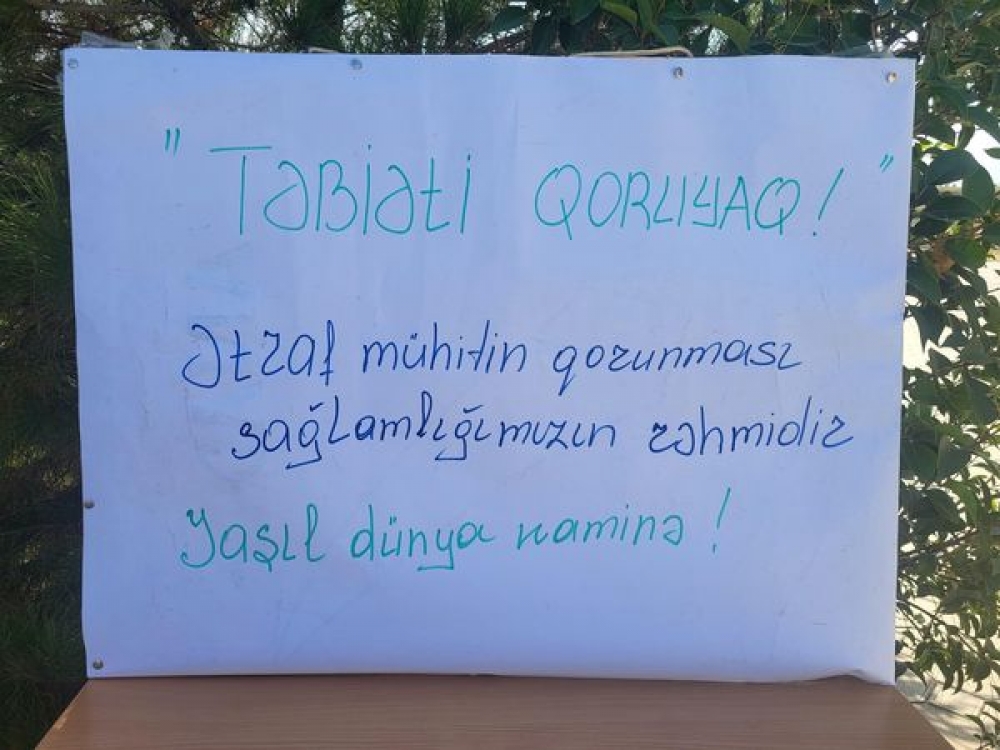 "TƏBİƏti QORUYAQ!"
Ətraf mühitin qorunması
sağlamlığımızın rəhmidir
Yaşıl dünya naminə!